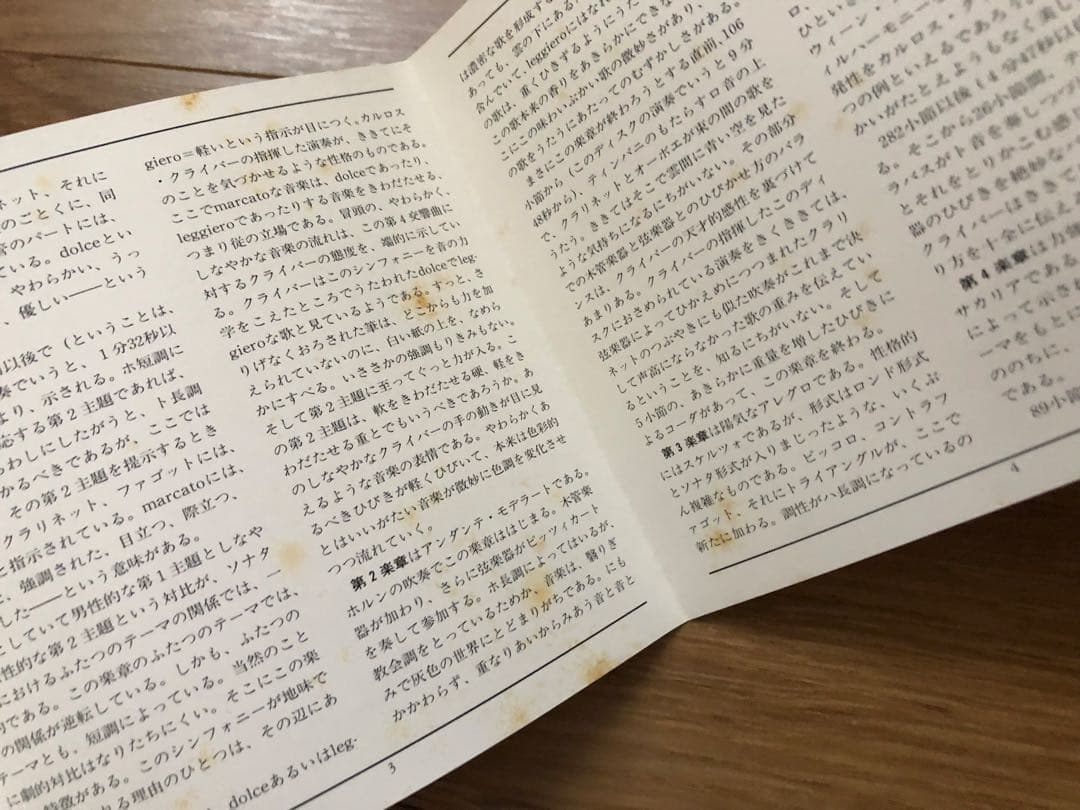 ネット、それに
のごとくに、同
管のパートには、
ている。dolceとい
、やわらかい、うっ
、優しい——という
以後で（ということは、
奏でいうと、1分32秒以
より、示される。ホ短調に
応する第2主題であれば、
らわしにしたがうと、ト長調
かるべきであるが、ここでは
その第2主題を提示するとき
クラリネット、ファゴットには、
と指示されている。marcatoには、
、強調された、目立つ、際立つ、
した——という意味がある。
としていて男性的な第1主題としなや
性的な第2主題という対比が、ソナタ
におけるふたつのテーマの関係では、一
的である。この楽章のふたつのテーマでは、
の関係が逆転している。しかも、ふたつの
テーマとも、短調によっている。当然のこと
に劇的対比はなりたちにくい。そこにこの楽
特徴がある。このシンフォニーが地味で
れる理由のひとつは、その辺にあ
dolceあるいはleg-
3
giero＝軽いという指示が目につく。カルロス
・クライバーの指揮した演奏が、ききてにそ
のことを気づかせるような性格のものである。
ここでmarcatoな音楽は、dolceであったり、
leggieroであったりする音楽をきわだたせる、
つまり従の立場である。冒頭の、やわらかく、
しなやかな音楽の流れは、この第4交響曲に
対するクライバーの態度を、端的に示してい
る。クライバーはこのシンフォニーを音の力
学をこえたところでうたわれたdolceでleg-
gieroな歌と見ているようである。すっと、さ
りげなくおろされた筆は、どこからも力を加
えられていないのに、白い紙の上を、なめら
かにすべる。いささかの強調もりきみもない。
そして第2主題に至ってぐっと力が入る。こ
の第2主題は、軟をきわだたせる硬、軽をき
わだたせる重とでもいうべきであろうか。あ
のしなやかなクライバーの手の動きが目に見
えるような音楽の表情である。やわらかくあ
るべきひびきが軽くひびいて、本来は色彩的
とはいいがたい音楽が微妙に色調を変化させ
つつ流れていく。
第2楽章はアンダンテ・モデラートである。
ホルンの吹奏でこの楽章ははじまる。木管楽
器が加わり、さらに弦楽器がピッツィカート
を奏して参加する。ホ長調によってはいるが、
教会調をとっているためか、音楽は、翳りぎ
みで灰色の世界にとどまりがちである。にも
かかわらず、重なりあいからみあう音と音と
は濃密な歌を形成する
あっても、雲の下にある
含んでいて、leggieroにはなれ
の歌は、重くひきずるようにうた
この歌本来の香りをあきらかにできな
こにこの味わいぶかい歌の微妙さがあり、
の歌をうたうにあたってのむずかしさがある。
まさにこの楽章が終わろうとする直前、106
小節から（このディスクの演奏でいうと9分
48秒から）、ティンパニのもたらすロ音の上
で、クラリネットとオーボエが束の間の歌を
うたう。ききてはそこで雲間に青い空を見た
ような気持ちになるにちがいない。その部分
での木管楽器と弦楽器とのひびかせ方のバラ
ンスは、クライバーの天才的感性を裏づけて
あまりある。クライバーの指揮したこのディ
スクにおさめられている演奏をきくききては、
弦楽器によってひかえめにつつまれたクラリ
ネットのつぶやきにも似た吹奏がこれまで決
して声高にならなかった歌の重みを伝えてい
るということを、知るにちがいない。そして
5小節の、あきらかに重量を増したひびきに
よるコーダがあって、この楽章を終わる。
第3楽章は陽気なアレグロである。性格的
にはスケルツォであるが、形式はロンド形式
とソナタ形式が入りまじったような、いくぶ
ん複雑なものである。ピッコロ、コントラフ
ァゴット、それにトライアングルが、ここで
新たに加わる。調性がハ長調になっているの
4
ロ、
ひといき
ウィーン・フ
ィルハーモニー
発性をカルロス・ク
つの例といえるであろう
かいがたとえようもなく美し
282小節以後（4分47秒以
る。そこから26小節間、テ
ラバスがト音を奏しつづ
とそれをとりかこむ感じ
器のひびきを絶妙なバ
クライバーはききて
り方を十全に伝え
第4楽章は力強
サカリアである
によって示され
ーマをもとに
ののちに、
である。
89小節